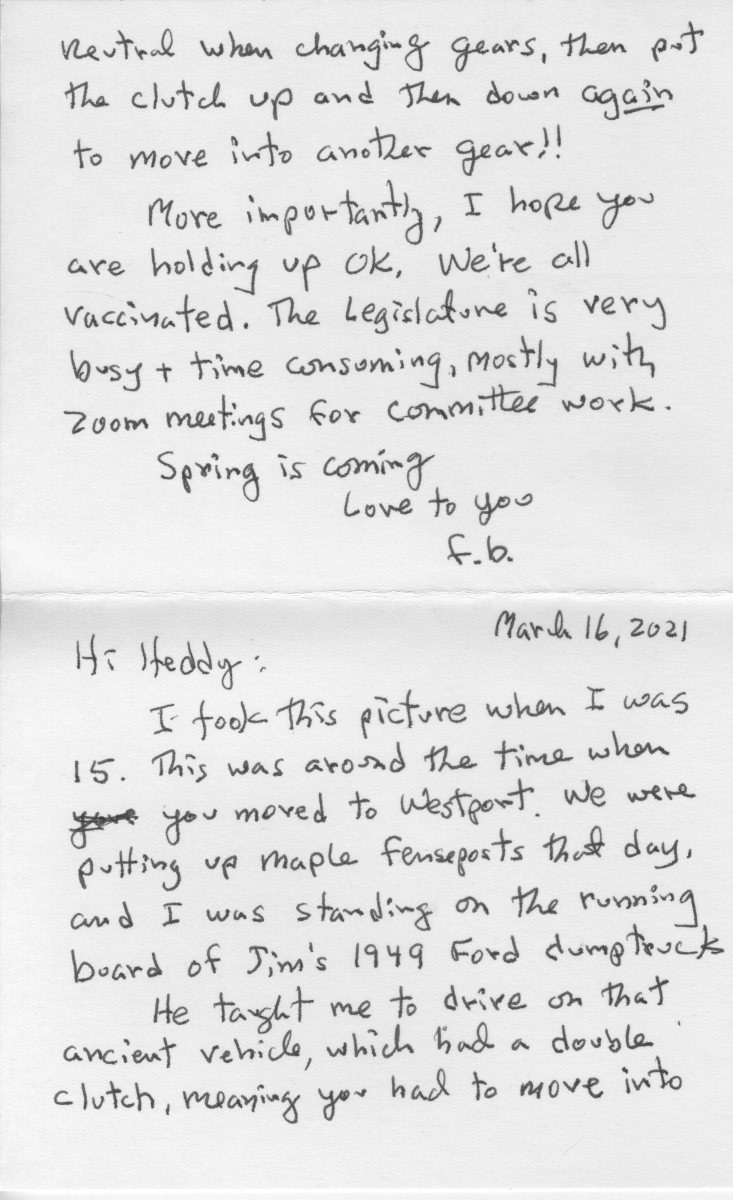 March 16, 2021
Hi Heddy:
I took this picture when I was
15. This was around the time when
you moved to Westport. We were
putting up maple fenseposts that day,
and I was standing on the running
board of Jim's 1949 Ford dumptruck
He taught me to drive on that
ancient vehicle, which had a double
clutch, meaning you had to move into
neutral when changing gears, then put
the clutch up and then down again
to move into another gear!!
More importantly, I hope you
are holding up OK. We're all
vaccinated. The Legislature is very
busy + time consuming, mostly with
zoom meetings for committee work.
Spring is coming
Love to you
f.b.